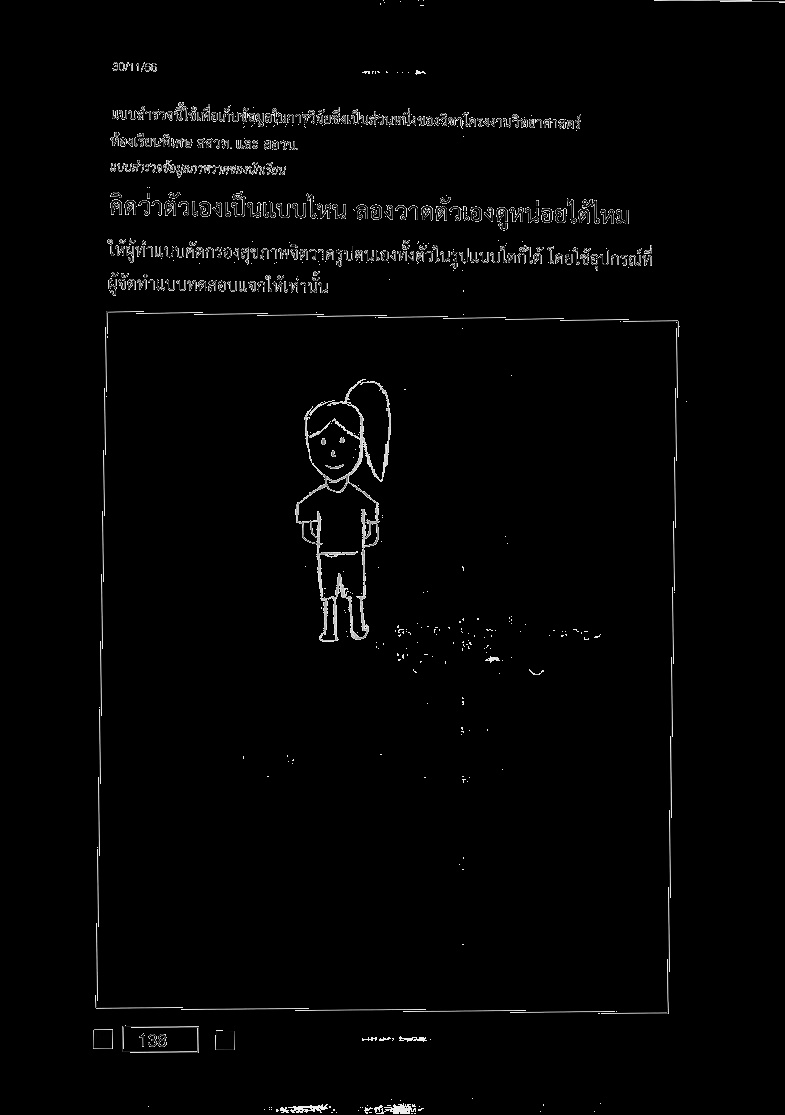 30/11/66
แบบสำรวจนี้ใช้เพื่อเก็บข้อมูลในการวิจัยซึ่งเป็นส่วนหนึ่งของวิชาโครงงานวิทยาศาสตร์
ห้องเรียนพิเศษ สสวท. และ สอวน.
แบบสำรวจข้อมูลภาพวาดของนักเรียน
คิดว่าตัวเองเป็นแบบไหน ลองวาดตัวเองดูหน่อยได้ไหม
ให้ผู้ทำแบบคัดกรองสุขภาพจิตวาดรูปตนเองทั้งตัวในรูปแบบใดก็ได้ โดยใช้อุปกรณ์ที่
ผู้จัดทำแบบทดสอบแจกให้เท่านั้น
136